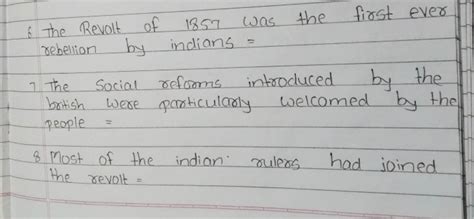 6 The Revolt of 1857 was the first ever
rebellion by indians =
7 The Social reforms introduced by the
british were particularly welcomed by the
people =
8 Most of the indian rulers had joined
the revolt =